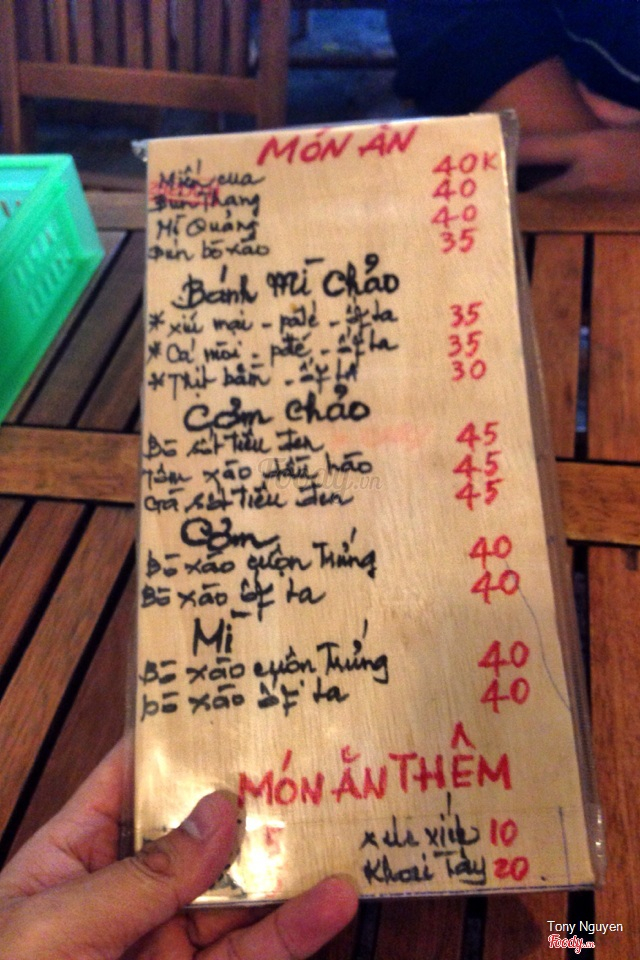 MÓN ĂN
Miến cua 40K
Bún Thang 40
Mì Quảng 40
Bún bò xào 35
Bánh Mì Chảo
* xíu mại - patê - ốp la 35
* Cá mòi - patê - ốp la 35
* Thịt bằm - ốp la 30
Cơm chảo
Bò sốt tiêu đen 45
Tôm xào dầu hào 45
Gà sốt tiêu đen 45
Cơm
Bò xào cuộn Trứng 40
Bò xào ốp la 40
Mì
Bò xào cuộn Trứng 40
Bò xào ốp la 40
MÓN ĂN THÊM
xúc xích 10
Khoai Tây 20
Foody.vn
Tony Nguyen
Foody.vn